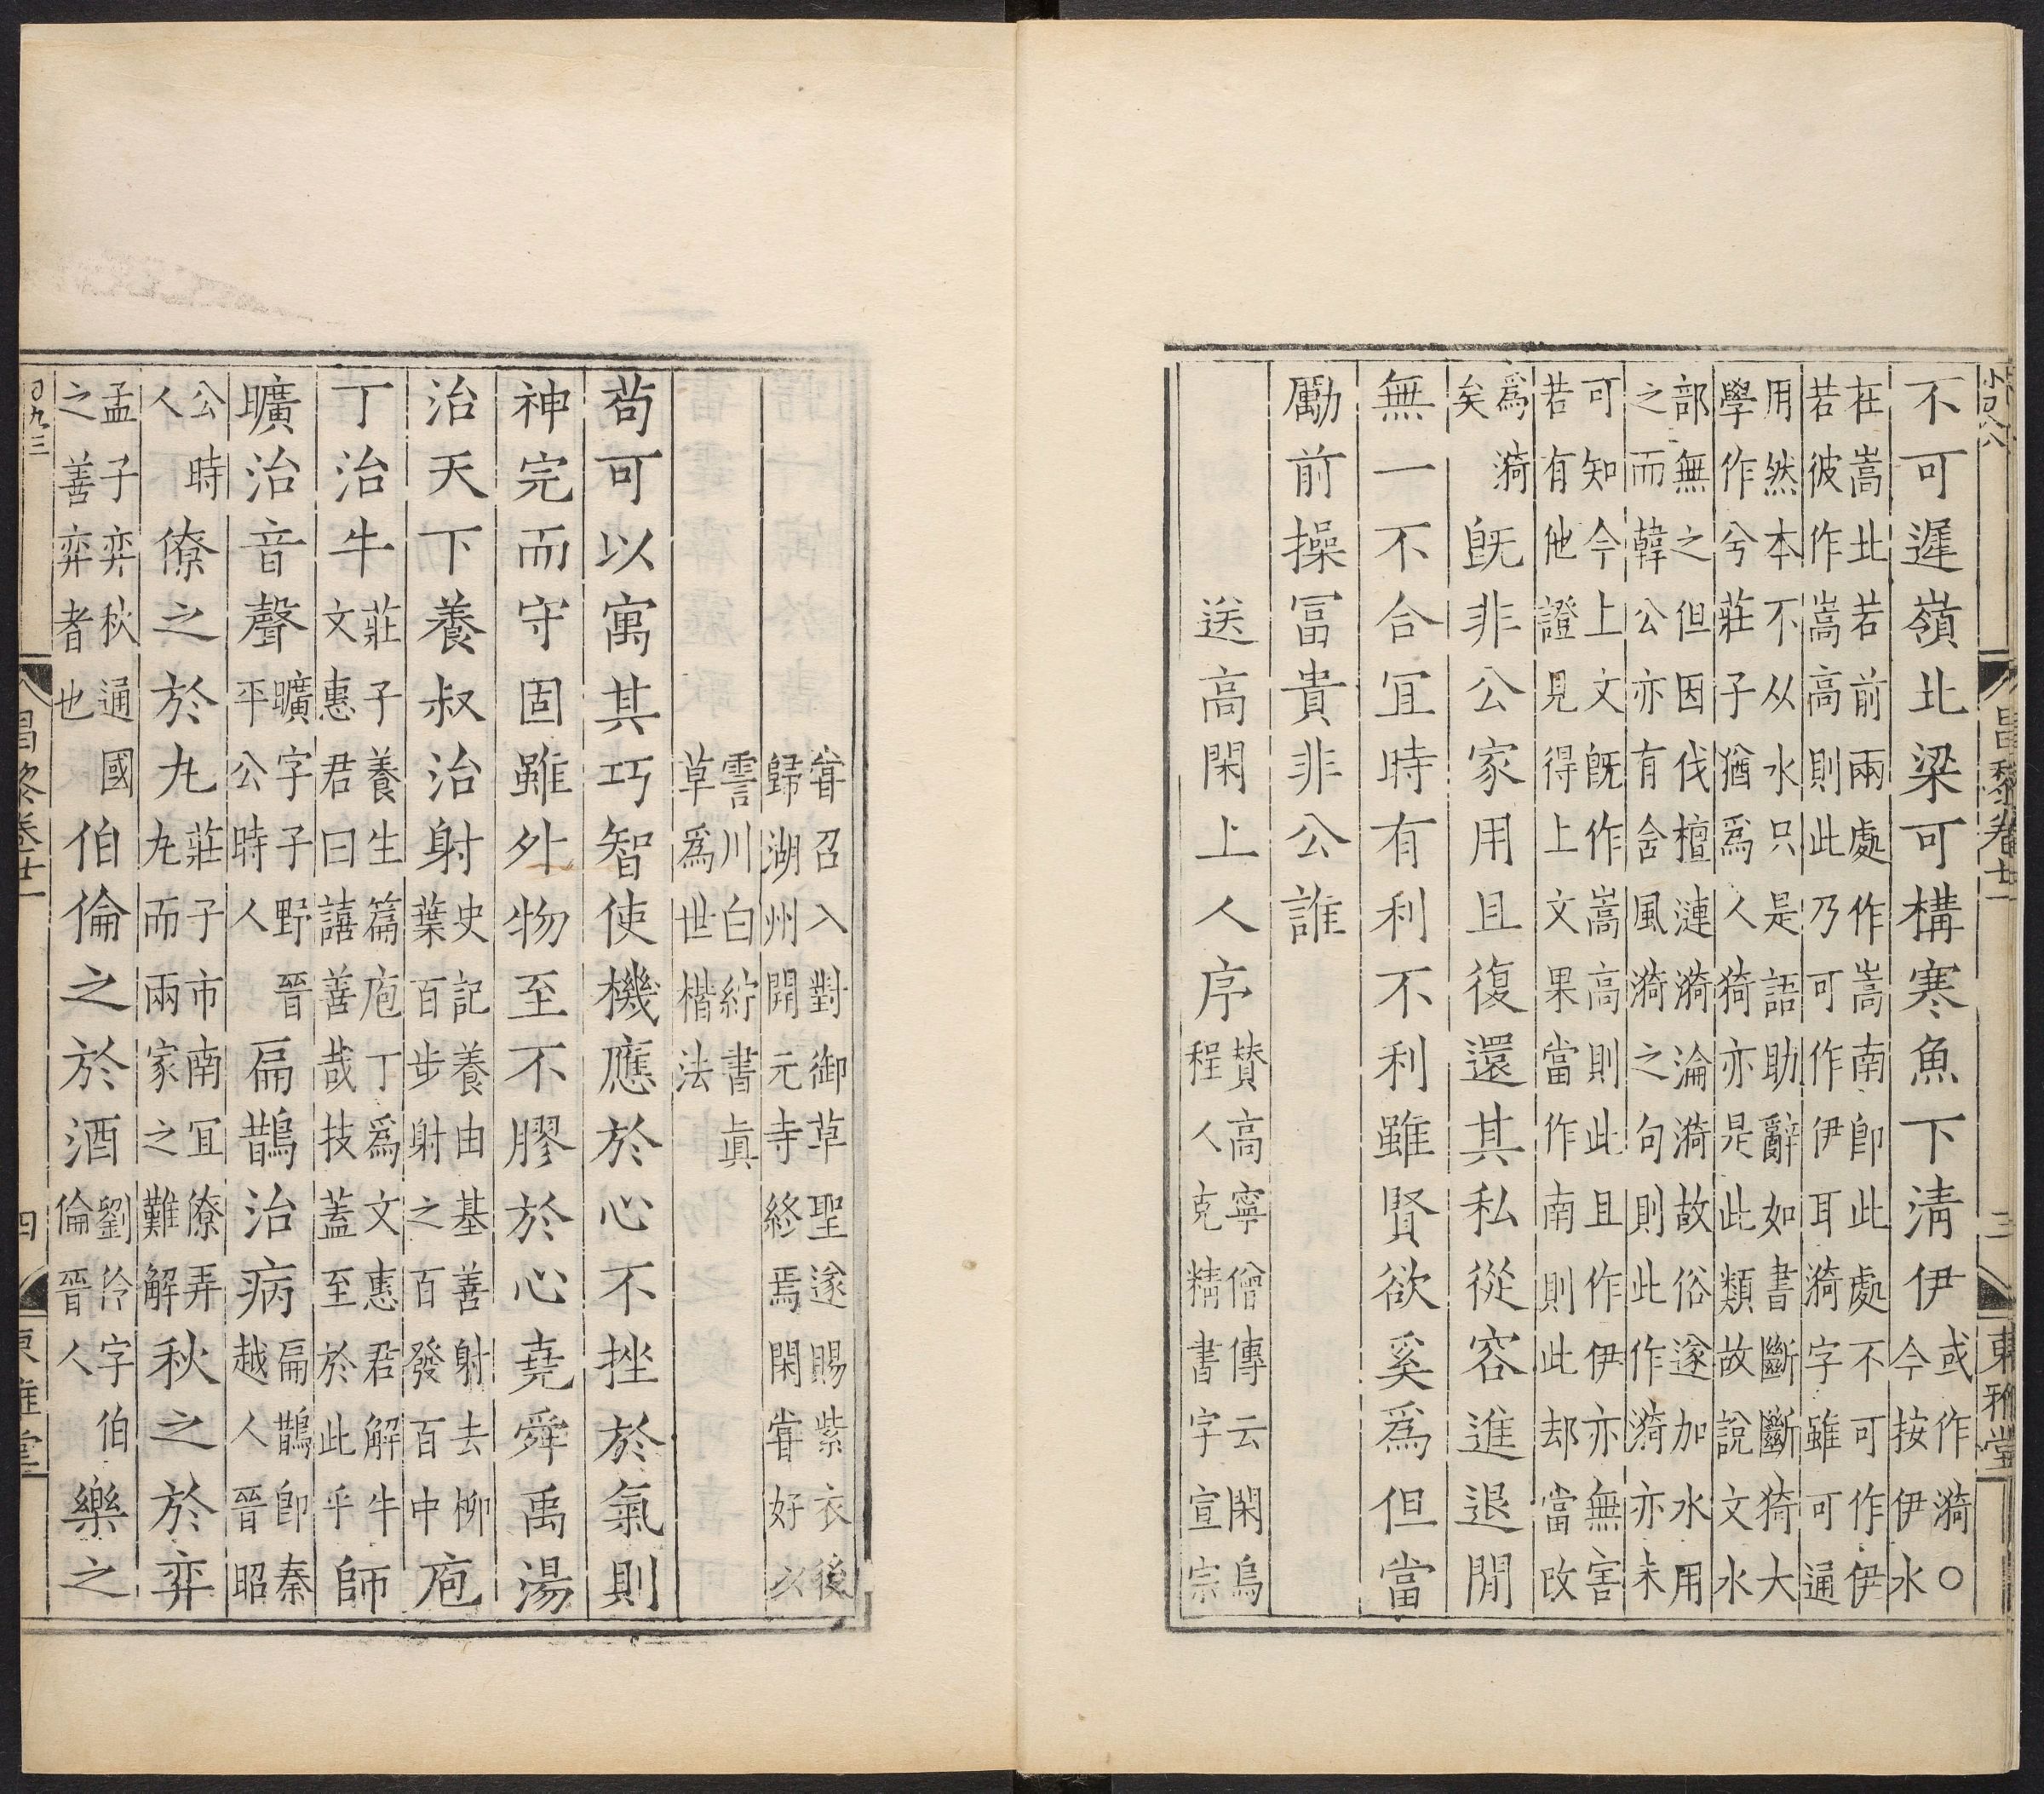 昌黎卷廿一 三 東雅堂
不可遲嶺北梁可構寒魚下淸伊或作漪○今按伊水
在嵩北若前兩處作嵩南即此處不可作伊
若彼作嵩高則此乃可作伊耳漪字雖可通
用然本不从水只是語助辭如書斷斷猗大
學作兮莊子猶爲人猗亦是此類故說文水
部無之但因伐檀漣漪淪漪故俗遂加水用
之而韓公亦有舍風漪之句則此作漪亦未
可知今上文旣作嵩高則此且作伊亦無害
若有他證見得上文果當作南則此却當改
爲漪矣旣非公家用且復還其私從容進退閒
無一不合宜時有利不利雖賢欲奚爲但當
勵前操冨貴非公誰
送高閑上人序贊高寧僧傳云閑烏程人克精書字宣宗
甞召入對御草聖遂賜紫衣後
歸湖州開元寺終焉閑甞好以
霅川白紵書眞
草爲世楷法
苟可以寓其巧智使機應於心不挫於氣則
神完而守固雖外物至不膠於心堯舜禹湯
治天下養叔治射史記養由基善射去柳葉百步射之百發百中庖
丁治牛莊子養生篇庖丁爲文惠君解牛文惠君曰譆善哉技蓋至於此乎師
曠治音聲曠字子野晉平公時人扁鵲治病扁鵲即秦越人晉昭
公時人僚之於丸莊子市南宜僚弄丸而兩家之難解秋之於弈
孟子弈秋通國之善弈者也伯倫之於酒劉伶字伯倫晉人樂之
昌黎卷廿一 四 東雅堂